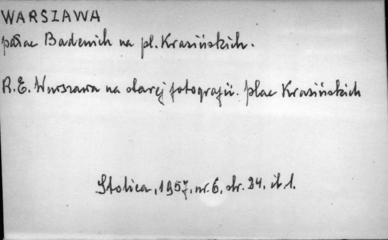 WARSZAWA
pałac Badenich na pl. Krasińskich.
R.E. Warszawa na starej fotografii. plac Krasińskich
Stolica, 1957, nr. 6, str. 24, il. 1.